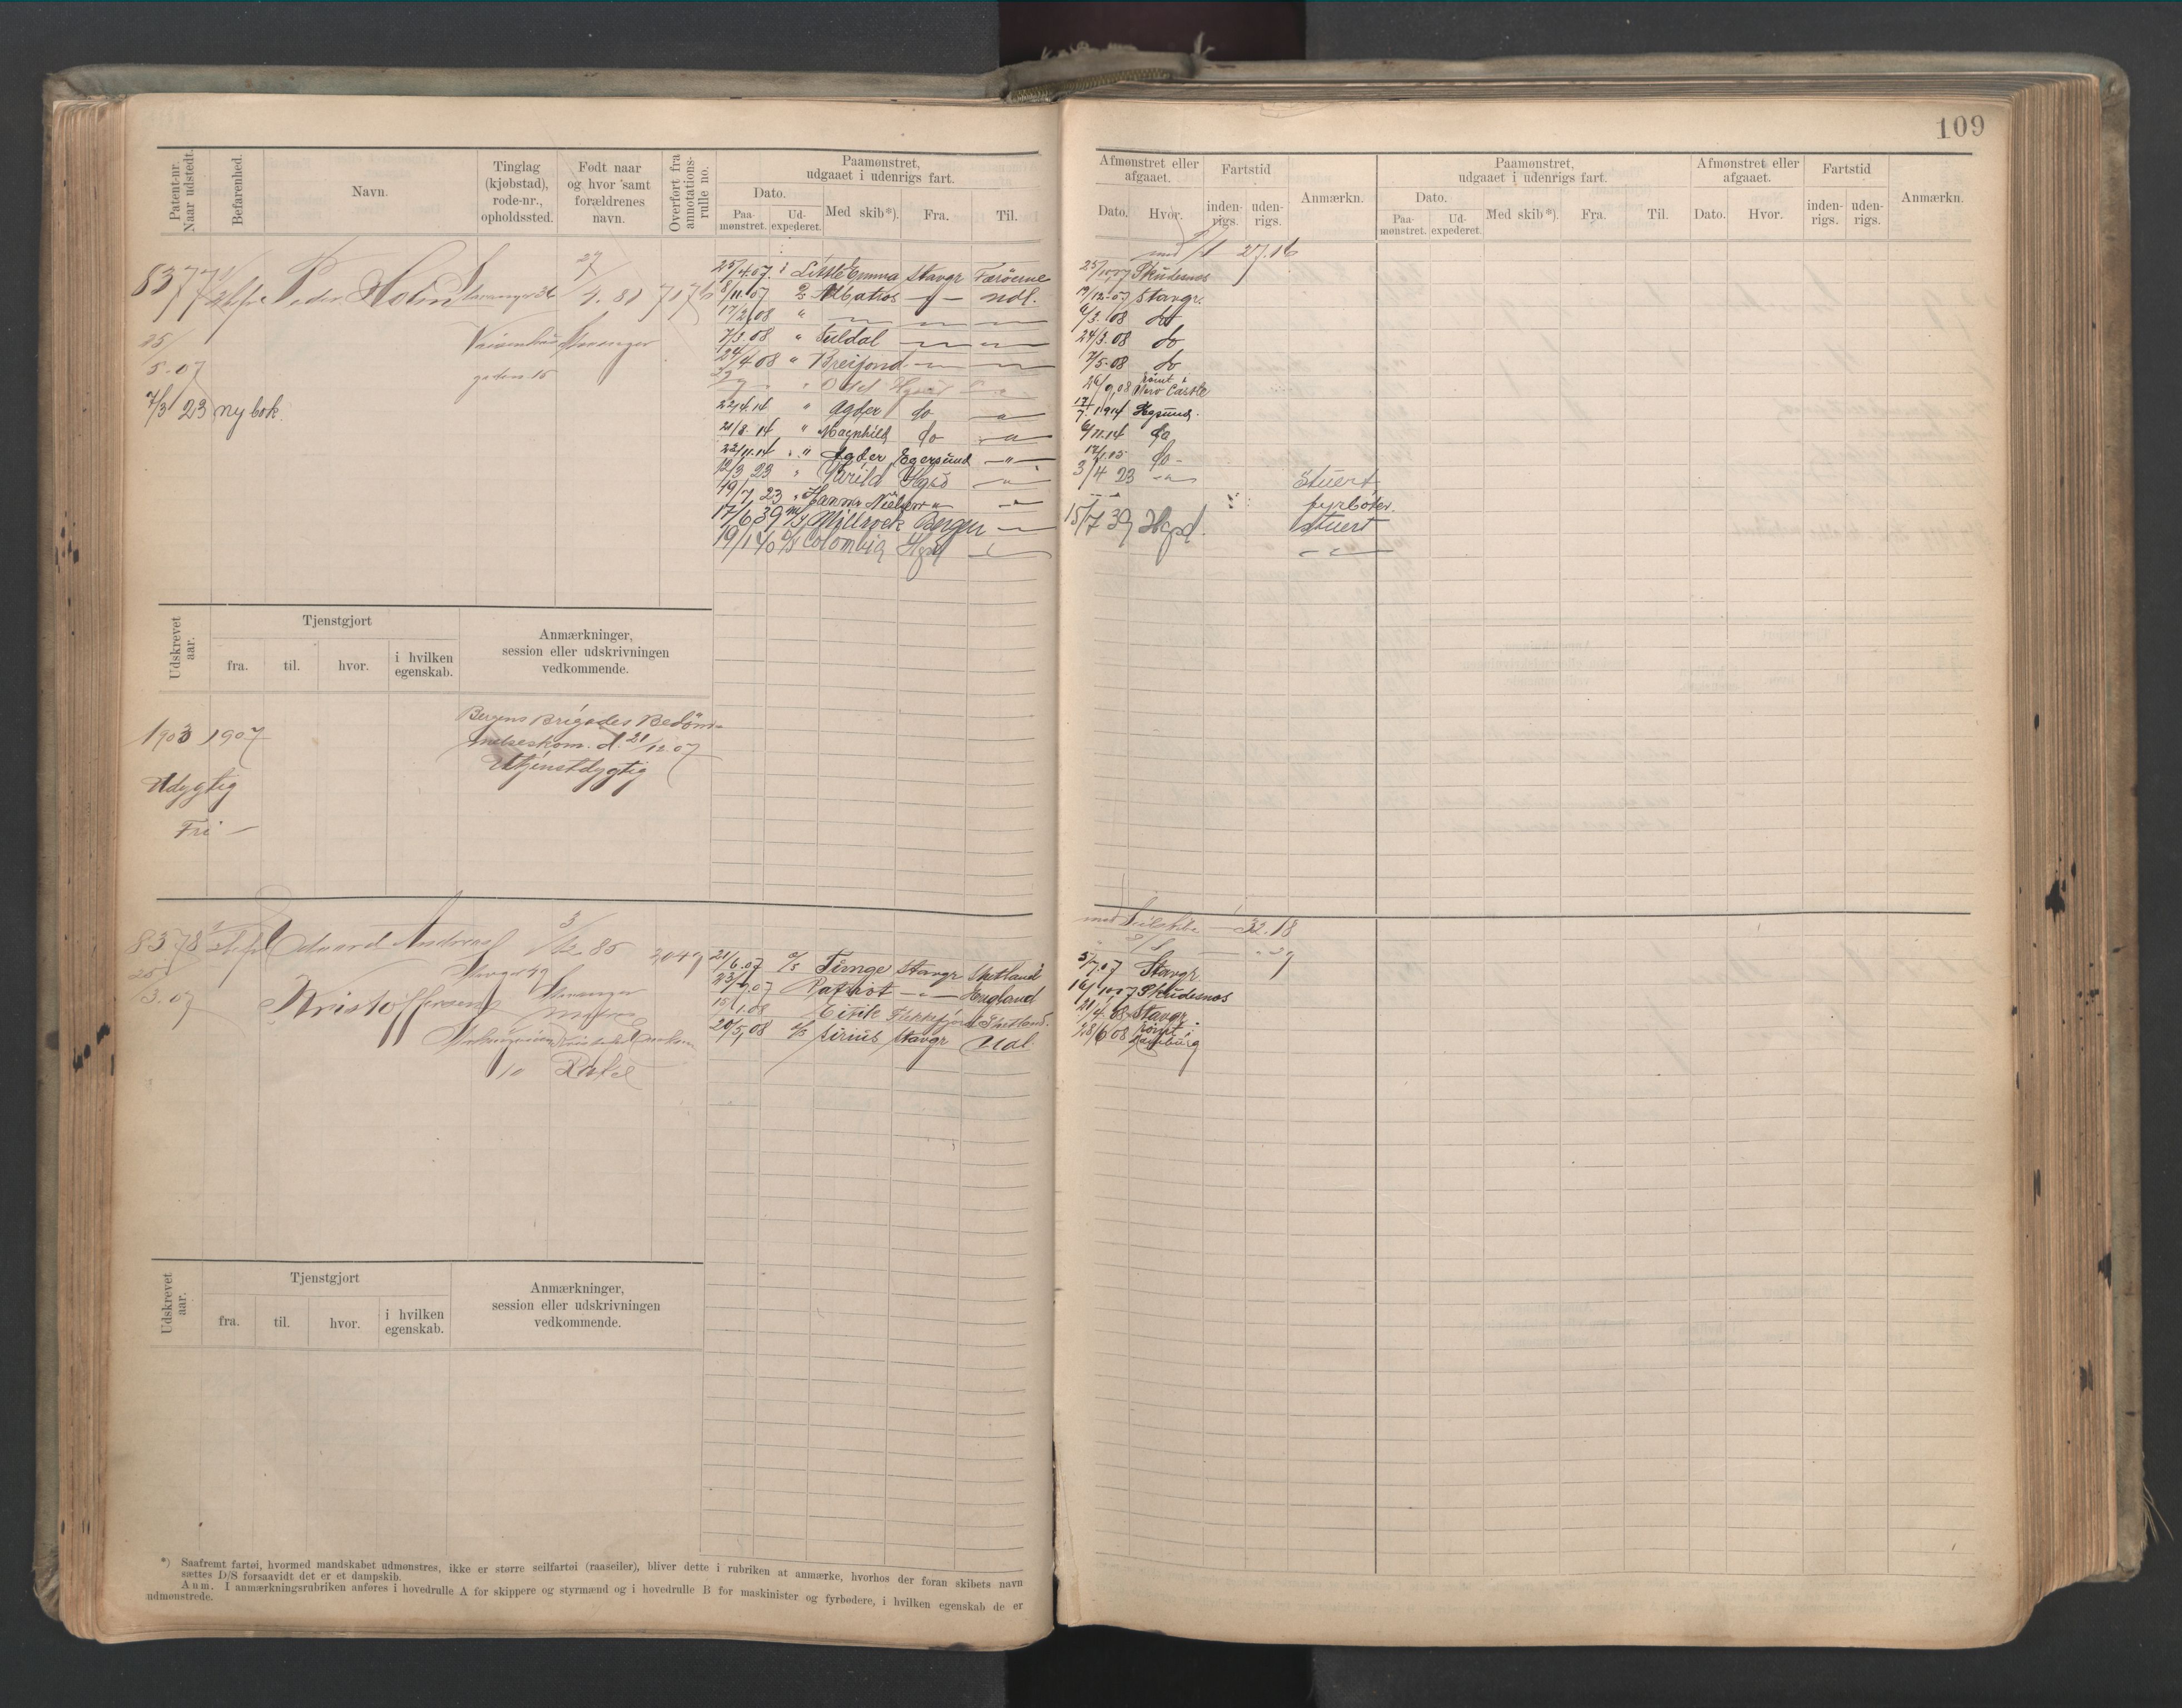 109
Patent-nr. Naar udstedt.
Befarenhed.
Navn.
Tinglag (kjøbstad), rode-nr., opholdssted.
Født naar og hvor samt forældrenes navn.
Overført fra annotations-rulle no.
Paamønstret, udgaaet i udenrigs fart.
Dato.
Paa-mønstret.
Ud-expederet.
Med skib*).
Fra.
Til.
Afmønstret eller afgaaet.
Dato.
Hvor.
Fartstid
inden-rigs.
uden-rigs.
Anmærkn.
Paamønstret, udgaaet i udenrigs fart.
Dato.
Paa-mønstret.
Ud-expederet.
Med skib*).
Fra.
Til.
Afmønstret eller afgaaet.
Dato.
Hvor.
Fartstid
inden-rigs.
uden-rigs.
Anmærkn.
8377
Peder Holm
Stavanger 36
27/4. 81
Stavanger
25/5. 07
7/3 23 ny bok.
25/4.07. Little Emma Stavgr Færöerne
8/11.07 Albatros — " — Udl.
17/2 08 " — — —
7/3.08 " Suldal — — —
24/4 08 " Breifond — — —
22/4.14 " Agder do — " —
21/8.14 " Magnhild do — " —
22/11.14 " Agder Egersund — " —
12/3 23 " Varild Hgsd — " —
19/7 23 " Hanna Nielsen — " —
17/6 39 m/s Millrock Bergen —
19/1 40 Colombia Hgsd —
27.16
25/10 07 Skudesnes
19/12.07 Stavgr.
6/3. 08 do
24/3.08 do
7/5.08 do
26/9.08 rømt i New Castle
17/7. 1914 Hgsund.
6/11.14 do
17/1.15 do -
3/4 23 — " — Stuert
fyrbøter
15/7 39 Hgsd. Stuert
— " —
Udskrevet aar.
Tjenstgjort
fra.
til.
hvor.
i hvilken egenskab.
Anmærkninger, session eller udskrivningen vedkommende.
1903 1907
Udygtig
Fri —
Bergens Brigades Bedöm-
melseskom. d. 21/12.07
Utjenstdygtig
8378
Edvard Andreas
Kristoffersen
3/12 85
Stavgr 49
Stavanger
10
25/3. 07
21/6.07 Stavgr Shetland
23/7.07 Patriot — " — England
15/1.08 Flekkefjord Shetland.
20/5.08 Sirius Stavgr Udl.
med Seilskibe — 32.18
5/7.07 Stavgr
16/10 07 Skudesnes
21/4.08 Stavgr.
28/6 08 rømt i Hamburg
Udskrevet aar.
Tjenstgjort
fra.
til.
hvor.
i hvilken egenskab.
Anmærkninger, session eller udskrivningen vedkommende.
*) Saafremt fartøi, hvormed mandskabet udmønstres, ikke er større seilfartøi (raaseiler), bliver dette i rubriken at anmærke, hvorhos der foran skibets navn
sættes D/S forsaavidt det er et dampskib.
Anm. I anmærkningsrubriken anføres i hovedrulle A for skippere og styrmænd og i hovedrulle B for maskinister og fyrbødere, i hvilken egenskab de er
udmønstrede.